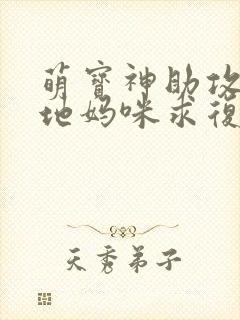 萌寶神助攻
地媽咪求復
天秀弟子